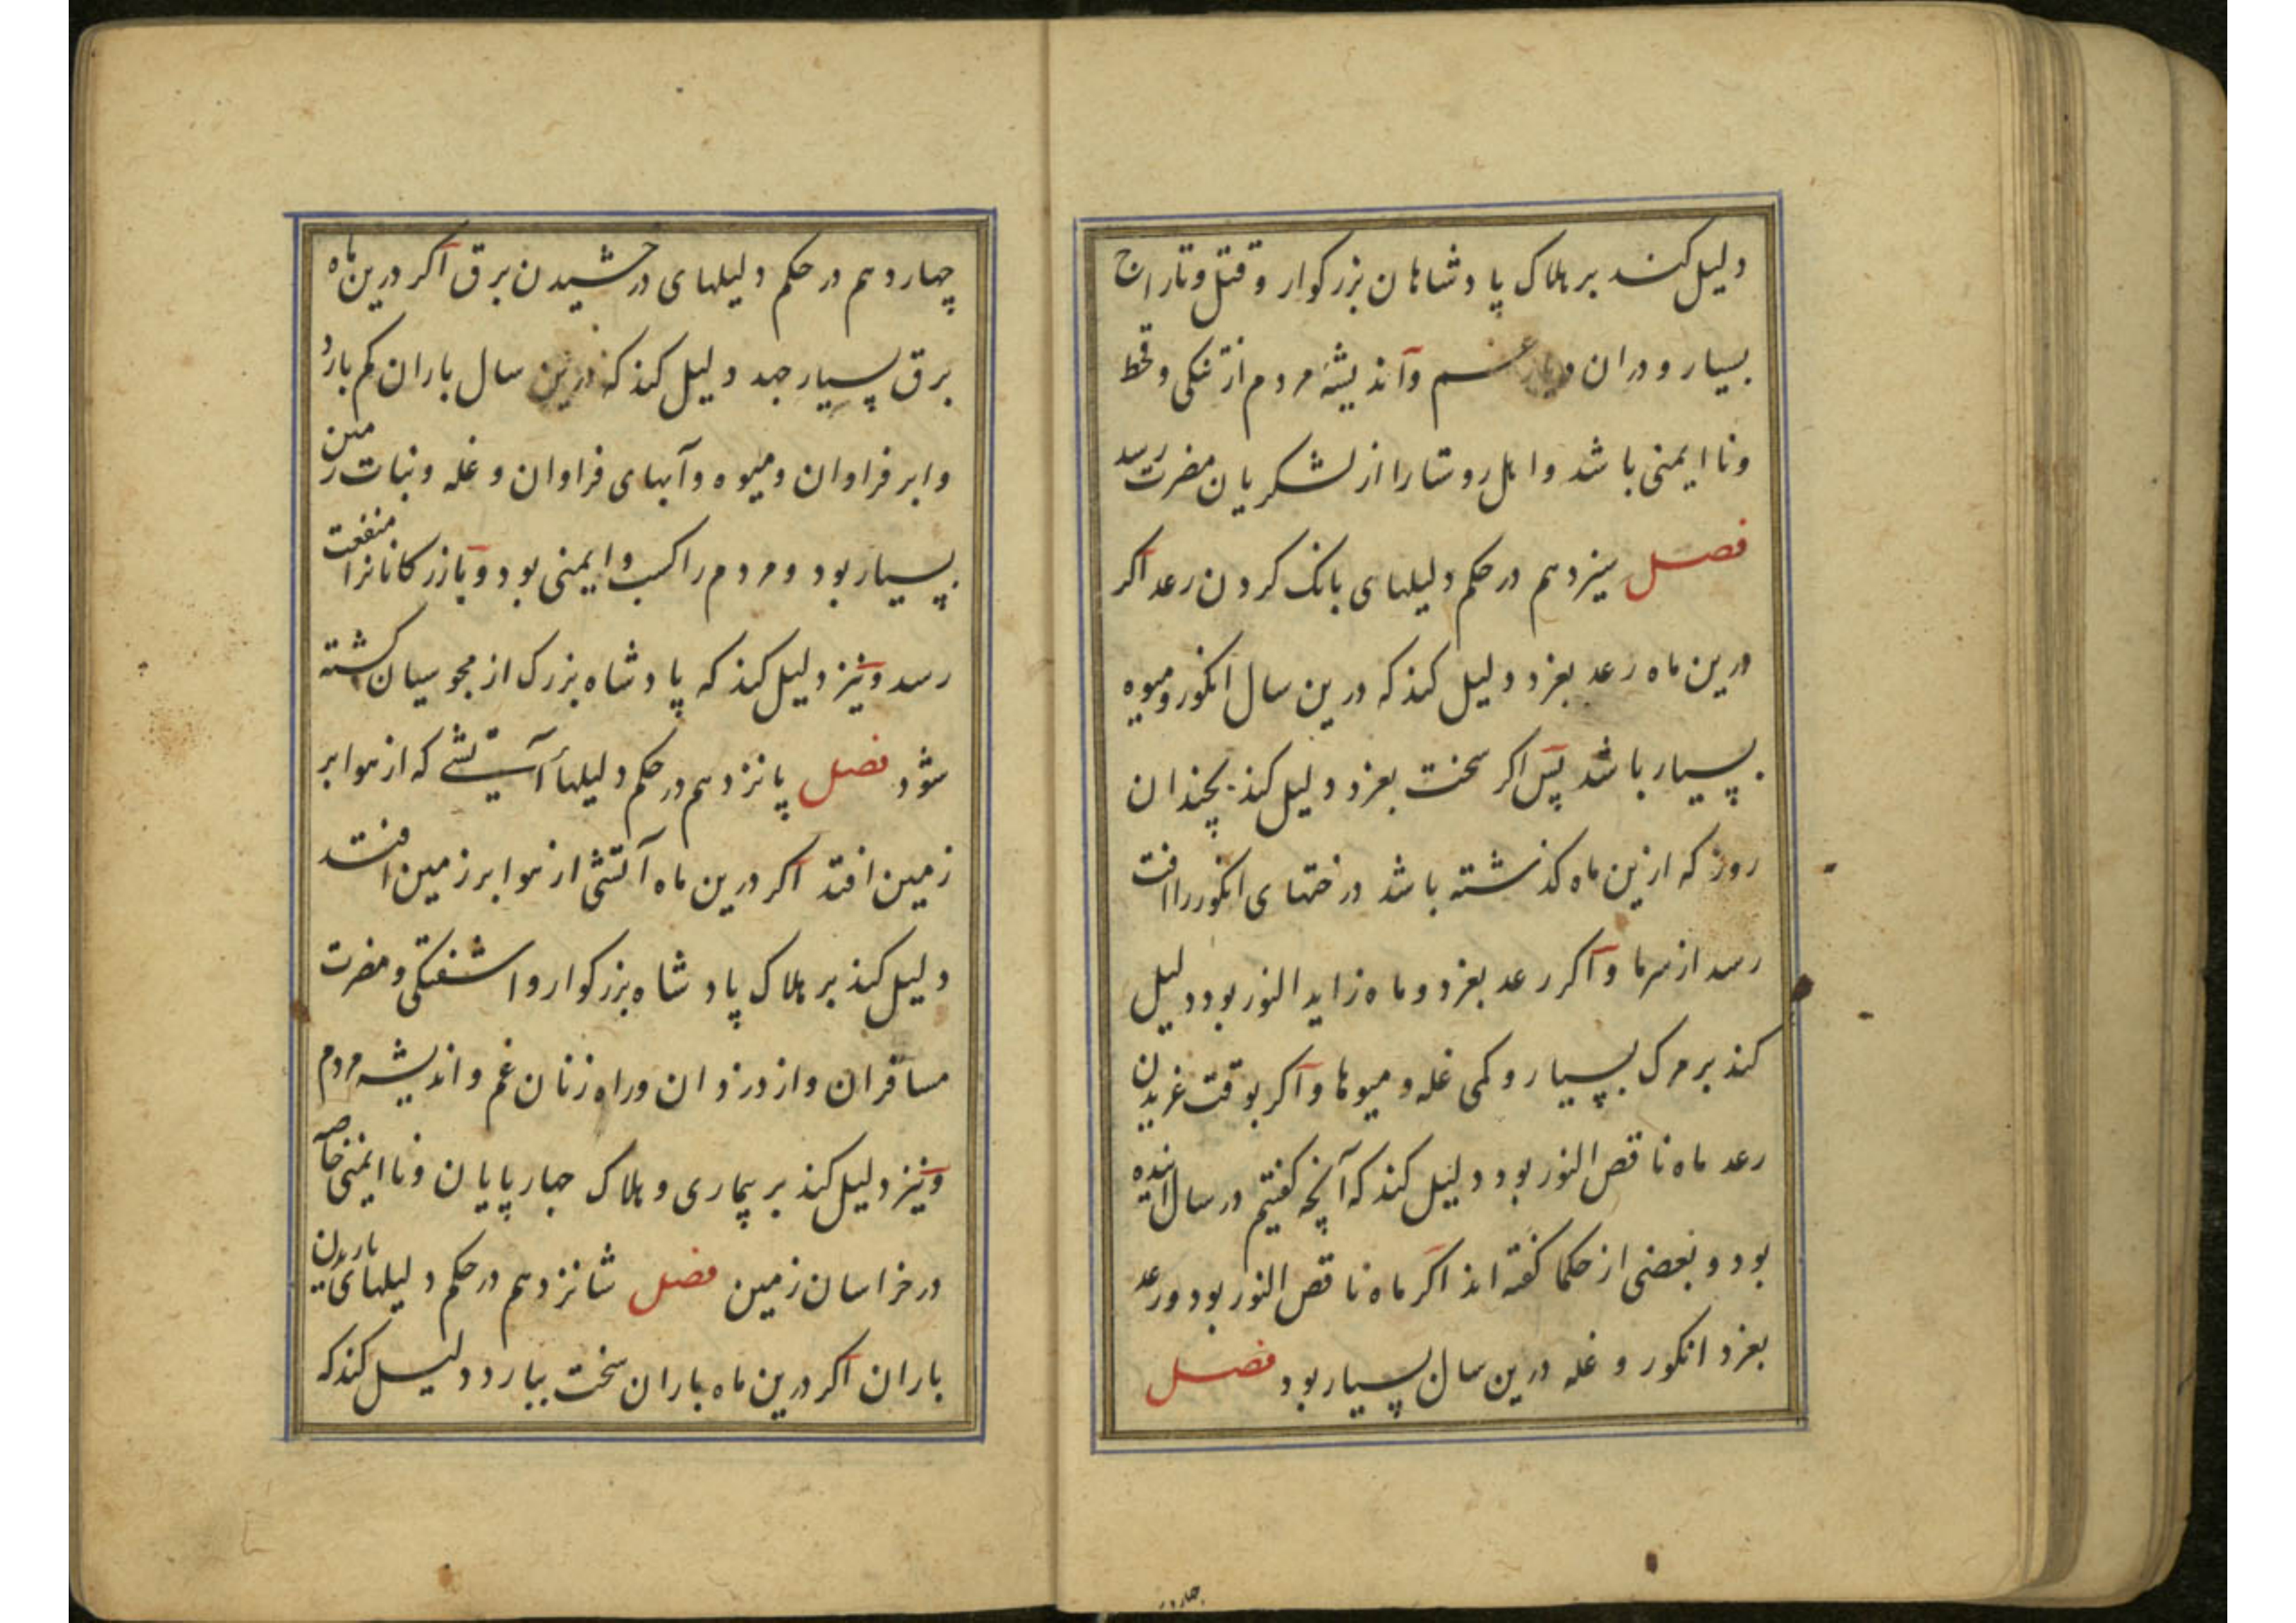 دلیل کند بر هلاک پادشاهان بزرکوار و قتل و تاراج
بسیار و دران دیار غم و اندیشه مردم از تنکی و قحط
و نا ایمنی باشد و اهل روستا را از لشکریان مضرت رسد
فصل سیزدهم در حکم دلیلهای بانک کردن رعد اکر
درین ماه رعد بغرد دلیل کند که درین سال انکور و میوه
بسیار باشد پس اکر سخت بغرد دلیل کند بچندان
روز که ازین ماه کذشته باشد درختهای انکور را افت
رسد از سرما و اکر رعد بغرد و ماه زاید النور بود دلیل
کند بر مرک بسیار و کمی غله و میوها و اکر بوقت غریدن
رعد ماه ناقص النور بود دلیل کند که آنچه کفتیم در سال اینده
بود و بعضی از حکما کفته اند اکر ماه ناقص النور بود و رعد
بغرد انکور و غله درین سال بسیار بود فصل
چهاردهم در حکم دلیلهای درخشیدن برق اکر درین ماه
برق بسیار جهد دلیل کند که درین سال باران کم بارد
و ابر فراوان و میوه و آبهای فراوان و غله و نبات زمین
بسیار بود و مردم را کسب و ایمنی بود و بازرکانانرا منفعت
رسد و نیز دلیل کند که پادشاه بزرک از مجوسیان کشته
شود فصل پانزدهم در حکم دلیلهاء آتشی که از هوا بر
زمین افتد اکر درین ماه آتشی از هوا بر زمین افتد
دلیل کند بر هلاک پادشاه بزرکوار و اشفتکی و مضرت
مسافران و از دزدان و راه زنان غم و اندیشه مردم
و نیز دلیل کند بر بیماری و هلاک چهارپایان و نا ایمنی خاصه
در خراسان زمین فصل شانزدهم در حکم دلیلهای باریدن
باران اکر درین ماه باران سخت ببارد دلیل کند که